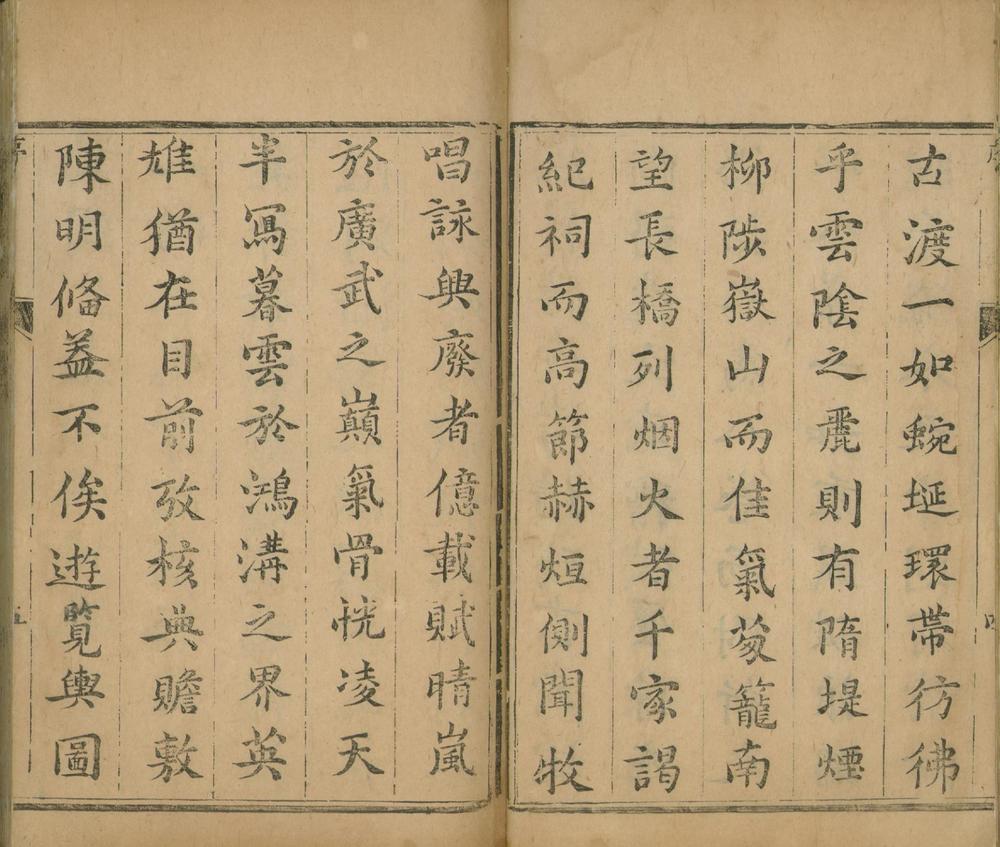 古渡一如蜿埏環帶彷彿
乎雲陰之麗則有隋堤煙
柳陟嶽山而佳氣葱籠南
望長橋列烟火者千家謁
紀祠而高節赫烜側聞牧
唱詠興廢者億載賦晴嵐
於廣武之巔氣骨恍凌天
半寫暮雲於鴻溝之界英
雄猶在目前攷核典贍敷
陳明俻葢不俟遊覧輿圖
序
五